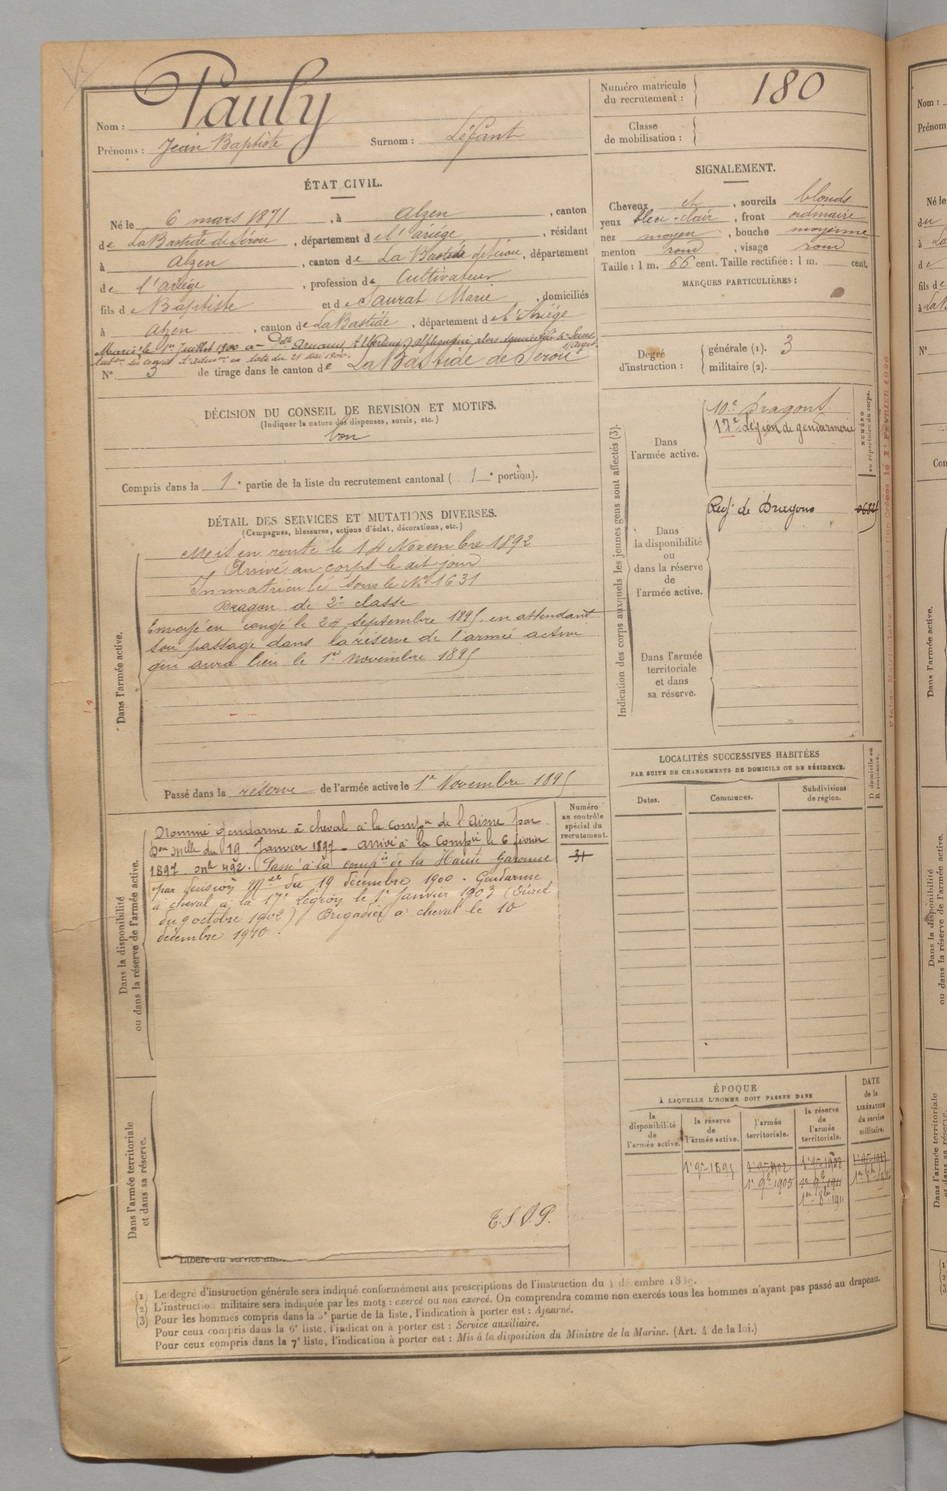 Nom : Pauly
Prénoms : Jean Baptiste Surnom : Léfant
Numéro matricule du recrutement : 180
Classe de mobilisation :
ÉTAT CIVIL.
Né le 6 mars 1871, à Alzen, canton
de La Bastide de Sérou, département de l'Ariège, résidant
à Alzen, canton de La Bastide de Sérou, département
de l'Ariège, profession de Cultivateur
fils de Baptiste et de Saurat Marie, domiciliés
à Alzen, canton de La Bastide, département de l'Ariège
Marié le 1er Juillet 1900 à Dlle
N° 3 de tirage dans le canton de La Bastide de Serou
DÉCISION DU CONSEIL DE REVISION ET MOTIFS.
(Indiquer la nature des dispenses, sursis, etc.)
bon
Compris dans la 1e partie de la liste du recrutement cantonal ( 1e portion).
DÉTAIL DES SERVICES ET MUTATIONS DIVERSES.
(Campagnes, blessures, actions d'éclat, décorations, etc.)
Dans l'armée active.
Mis en route le 14 Novembre 1892
Arrivé au corps le dit jour
Immatriculé sous le No 1631
Dragon de 2e classe
Envoyé en congé le 24 septembre 1895 en attendant
son passage dans la réserve de l'armée active
qui aura lieu le 1er novembre 1895
Passé dans la réserve de l'armée active le 1er Novembre 1895
Numéro au contrôle spécial du recrutement.
31
Dans la disponibilité ou dans la réserve de l'armée active.
Nommé gendarme à cheval à la Compie de l'Aisne par
Don Mlle du 19 Janvier 1897 - arrivé à la Compie le 6 février
1897 Mle 492. Passé à la compie de la Haute Garonne
par decision Mlle du 19 décembre 1900. Gendarme
à cheval à la 17e Légion le 1er janvier 1903 (
du 9 octobre 1902) Brigadier à cheval le 10
décembre 1910.
Dans l'armée territoriale et dans sa réserve.
T.S.V.P.
Libéré du service
SIGNALEMENT.
Cheveux et, sourcils blonds
yeux bleu-clair, front ordinaire
nez moyen, bouche moyenne
menton rond, visage rond
Taille : 1 m. 66 cent. Taille rectifiée : 1 m. cent.
MARQUES PARTICULIÈRES :
Degré d'instruction : générale (1). 3
militaire (2).
Indication des corps auxquels les jeunes gens sont affectés (3).
Dans l'armée active.
10e Dragons
17e Légion de gendarmerie
Dans la disponibilité ou dans la réserve de l'armée active.
Regt de Dragons
Dans l'armée territoriale et dans sa réserve.
LOCALITÉS SUCCESSIVES HABITÉES
PAR SUITE DE CHANGEMENTS DE DOMICILE OU DE RÉSIDENCE.
Dates. Communes. Subdivisions de région. D domicile ou R résidence.
ÉPOQUE
À LAQUELLE L'HOMME DOIT PASSER DANS
la disponibilité de l'armée active. la réserve de l'armée active. l'armée territoriale. la réserve de l'armée territoriale. DATE de la LIBÉRATION du service militaire.
1er 9bre 1895
1er 9bre 1905
(1) Le degré d'instruction générale sera indiqué conformément aux prescriptions de l'instruction du
(2) L'instruction militaire sera indiquée par les mots : exercé ou non exercé. On comprendra comme non exercés tous les hommes n'ayant pas passé au drapeau.
(3) Pour les hommes compris dans la 5e partie de la liste, l'indication à porter est : Ajourné.
Pour ceux compris dans la 6e liste, l'indication à porter est : Service auxiliaire.
Pour ceux compris dans la 7e liste, l'indication à porter est : Mis à la disposition du Ministre de la Marine. (Art. 4 de la loi.)